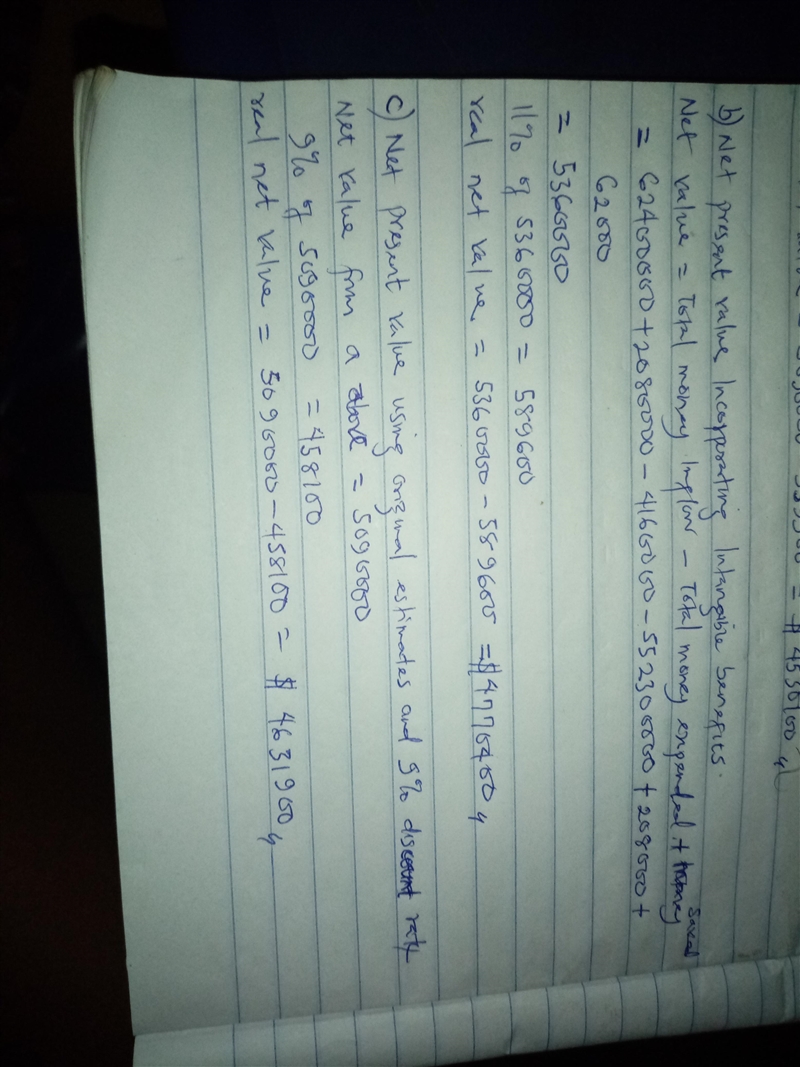 = $ 4530100
b) Net present value Incorporating Intangible benefits.
Net value = Total money Inflow - Total money expended + money saved
= 62400000 + 2080000 - 4160000 - 55230000 + 208000 +
62000
= 5360000
11% of 5360000 = 589600
real net value = 5360000 - 589600 = $4770400
c) Net present value using original estimates and 9% discount rate
Net value from a above = 5090000
9% of 5090000 = 458100
real net value = 5090000 - 458100 = $ 4631900